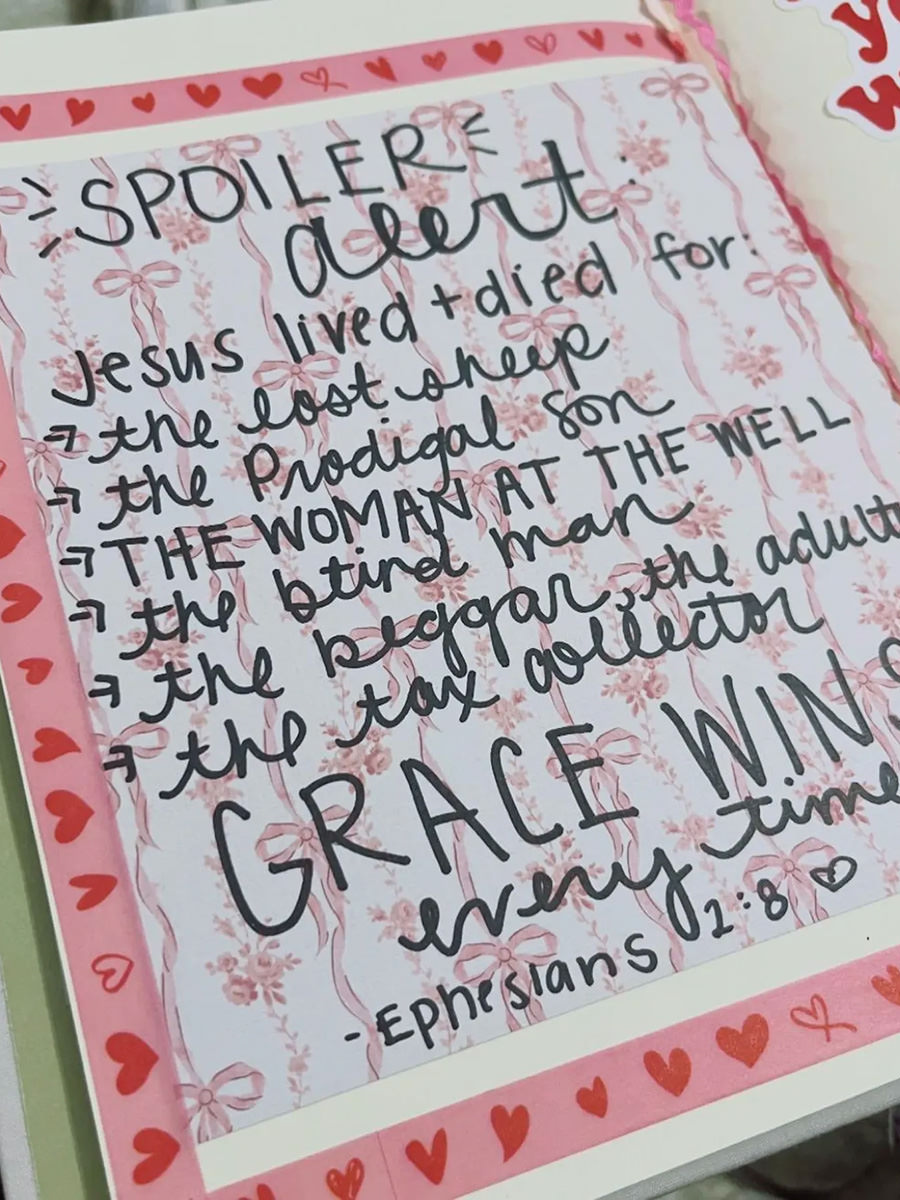 SPOILER
alert:
Jesus lived + died for:
→ the lost sheep
→ the Prodigal Son
→ THE WOMAN AT THE WELL
→ the blind man
→ the beggar, the adult
→ the tax collector
GRACE WINS
every time
- Ephesians 2:8 ♡